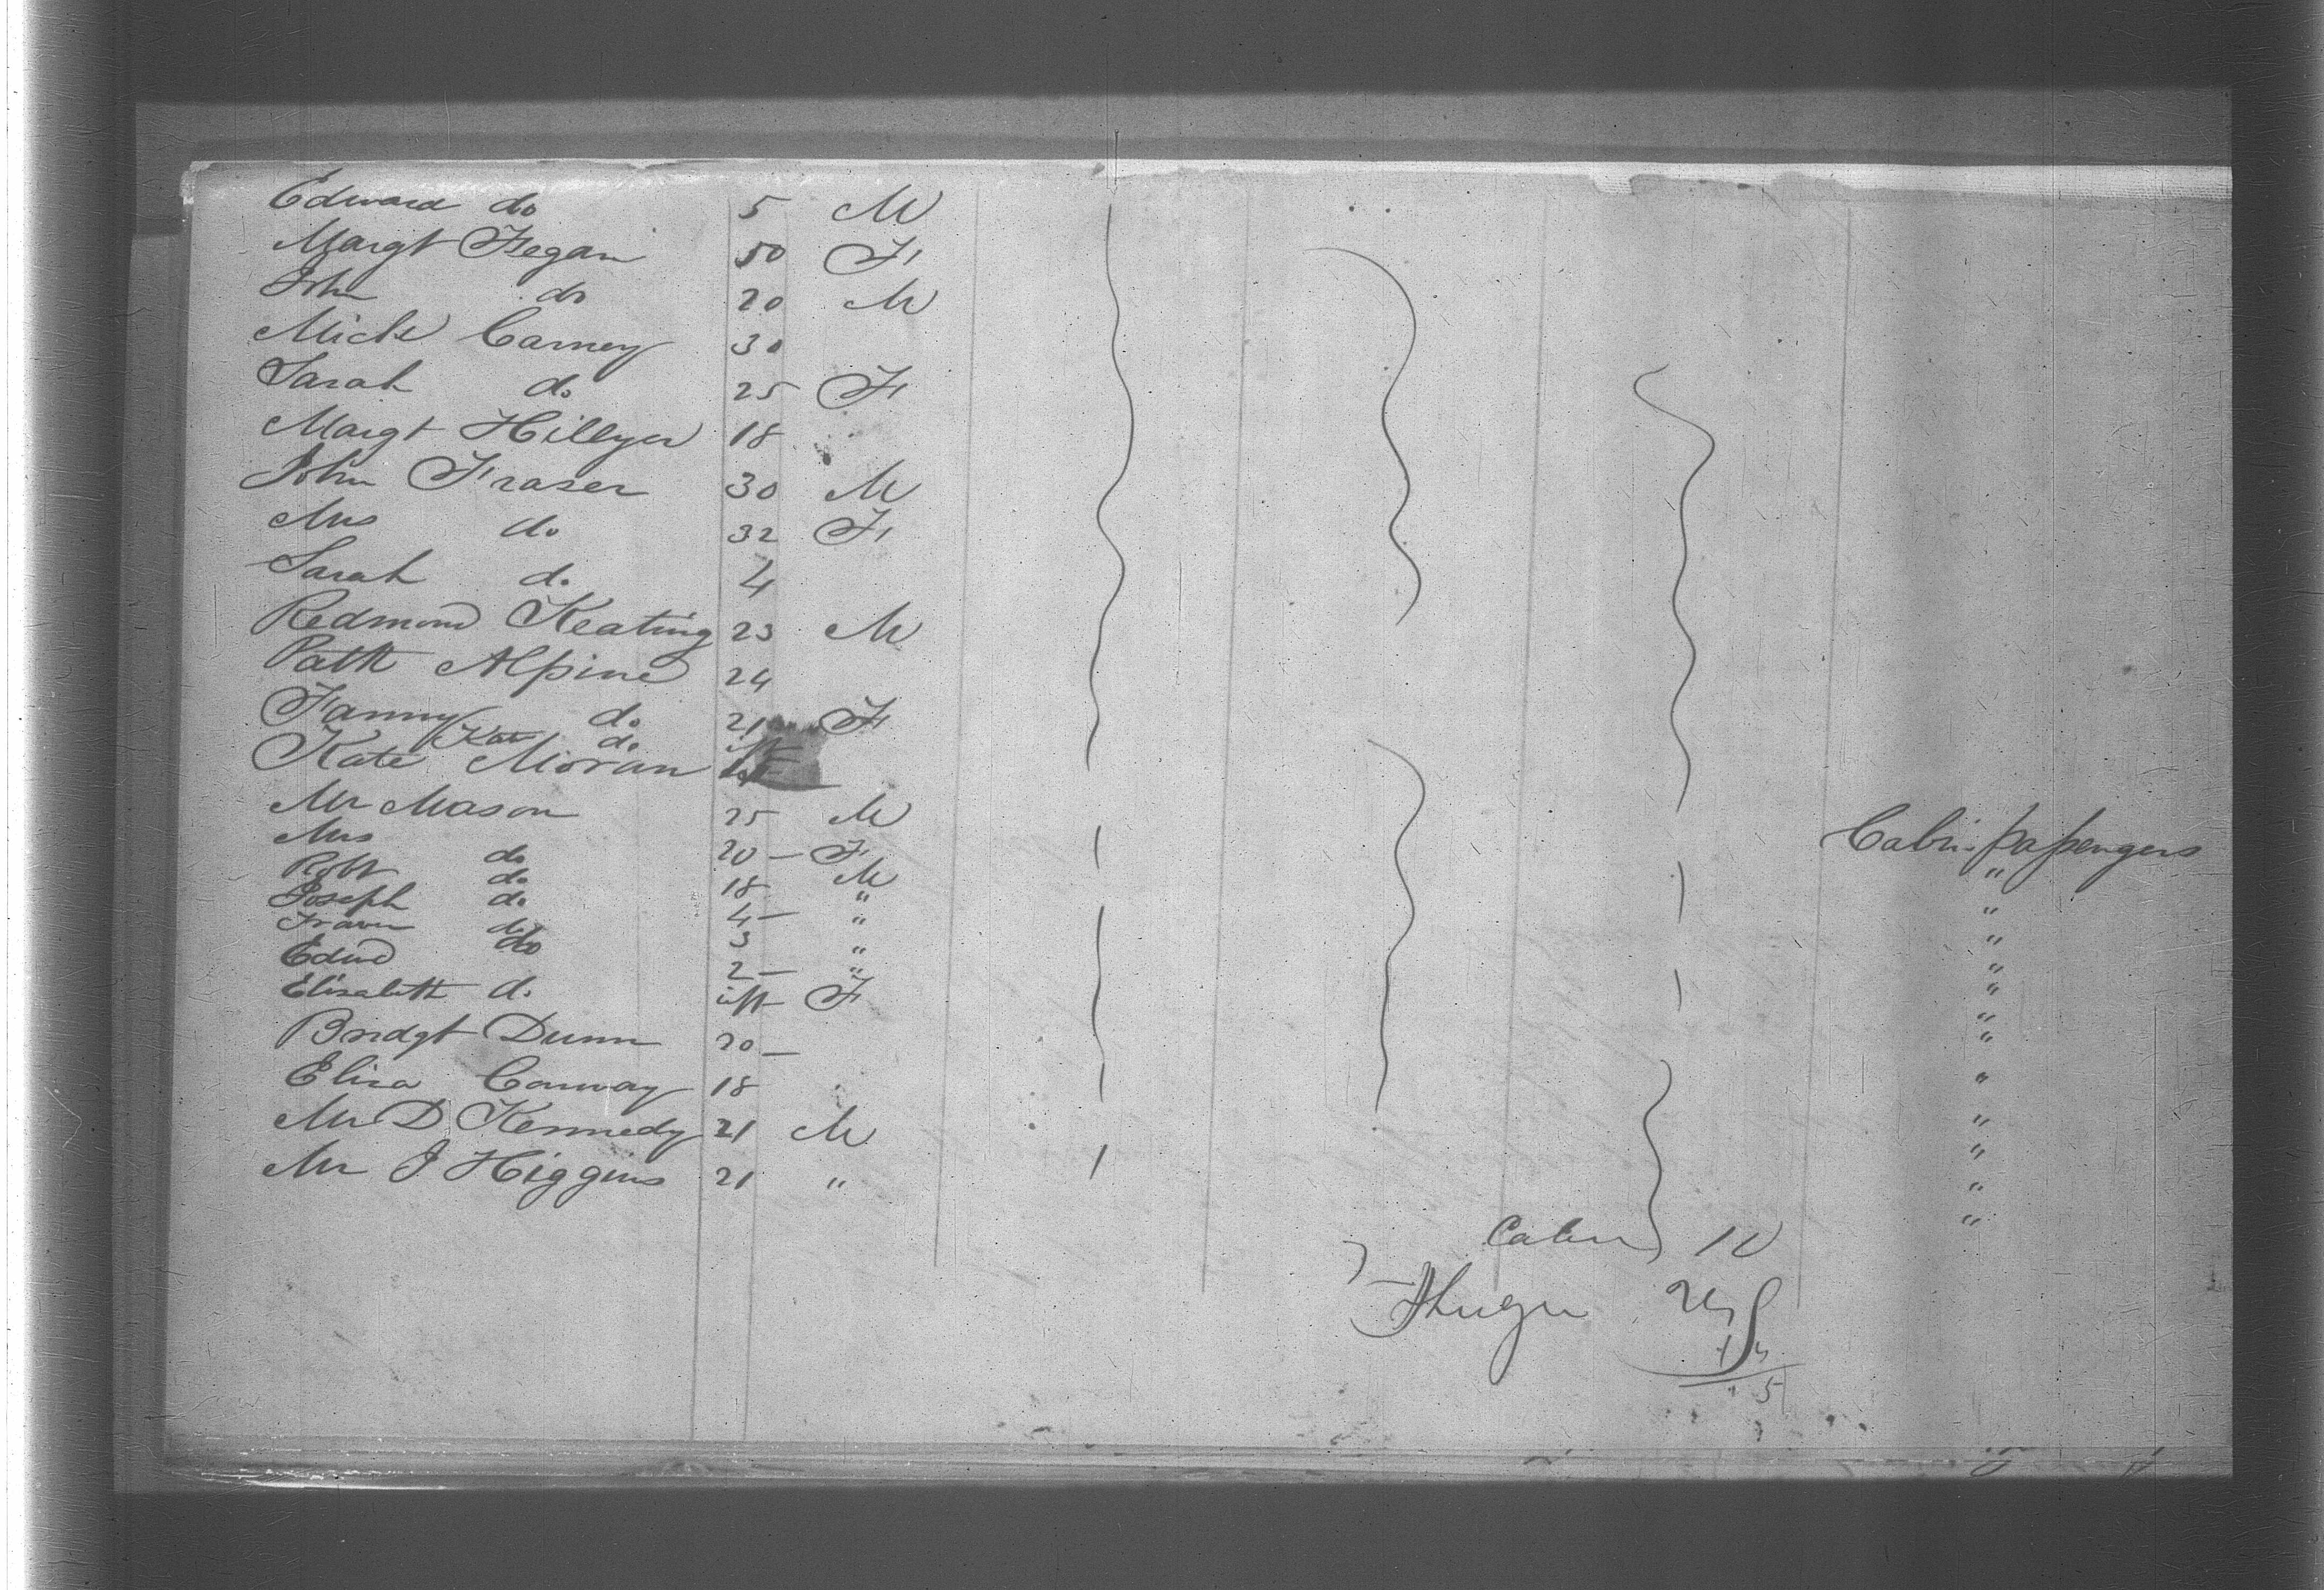 Edward do 5 M
Margt Fegan 50 F
John do 20 M
Michl Carney 30
Sarah do 25 F
Margt Hillyer 18
John Fraser 30 M
Mrs do 32 F
Sarah do 4
Redmond Keating 23 M
Patk Alpine 24
Fanny do 21 F
Kate do inft
Kate Moran
Mr Mason 25 M Cabin passengers
Mrs do 20 — F "
Robt do 18 M "
Joseph do 4 — " "
do 3 " "
Edwd do 2 — " "
Elizabeth do inft F "
Bridgt Dunn 20 — "
Eliza Conway 18 "
Mr D Kennedy 21 M "
Mr J Higgins 21 " "
Cabin
5